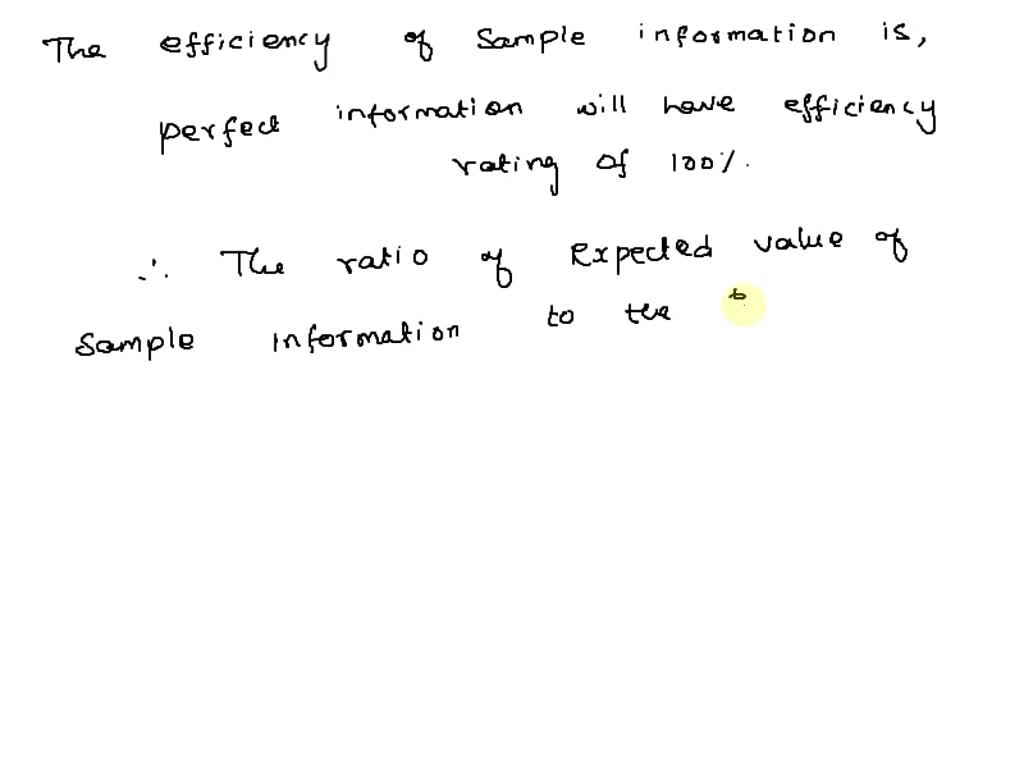 The efficiency of Sample information is,
perfect information will have efficiency
rating of 100%.
∴ The ratio of Expected value of
Sample Information to the